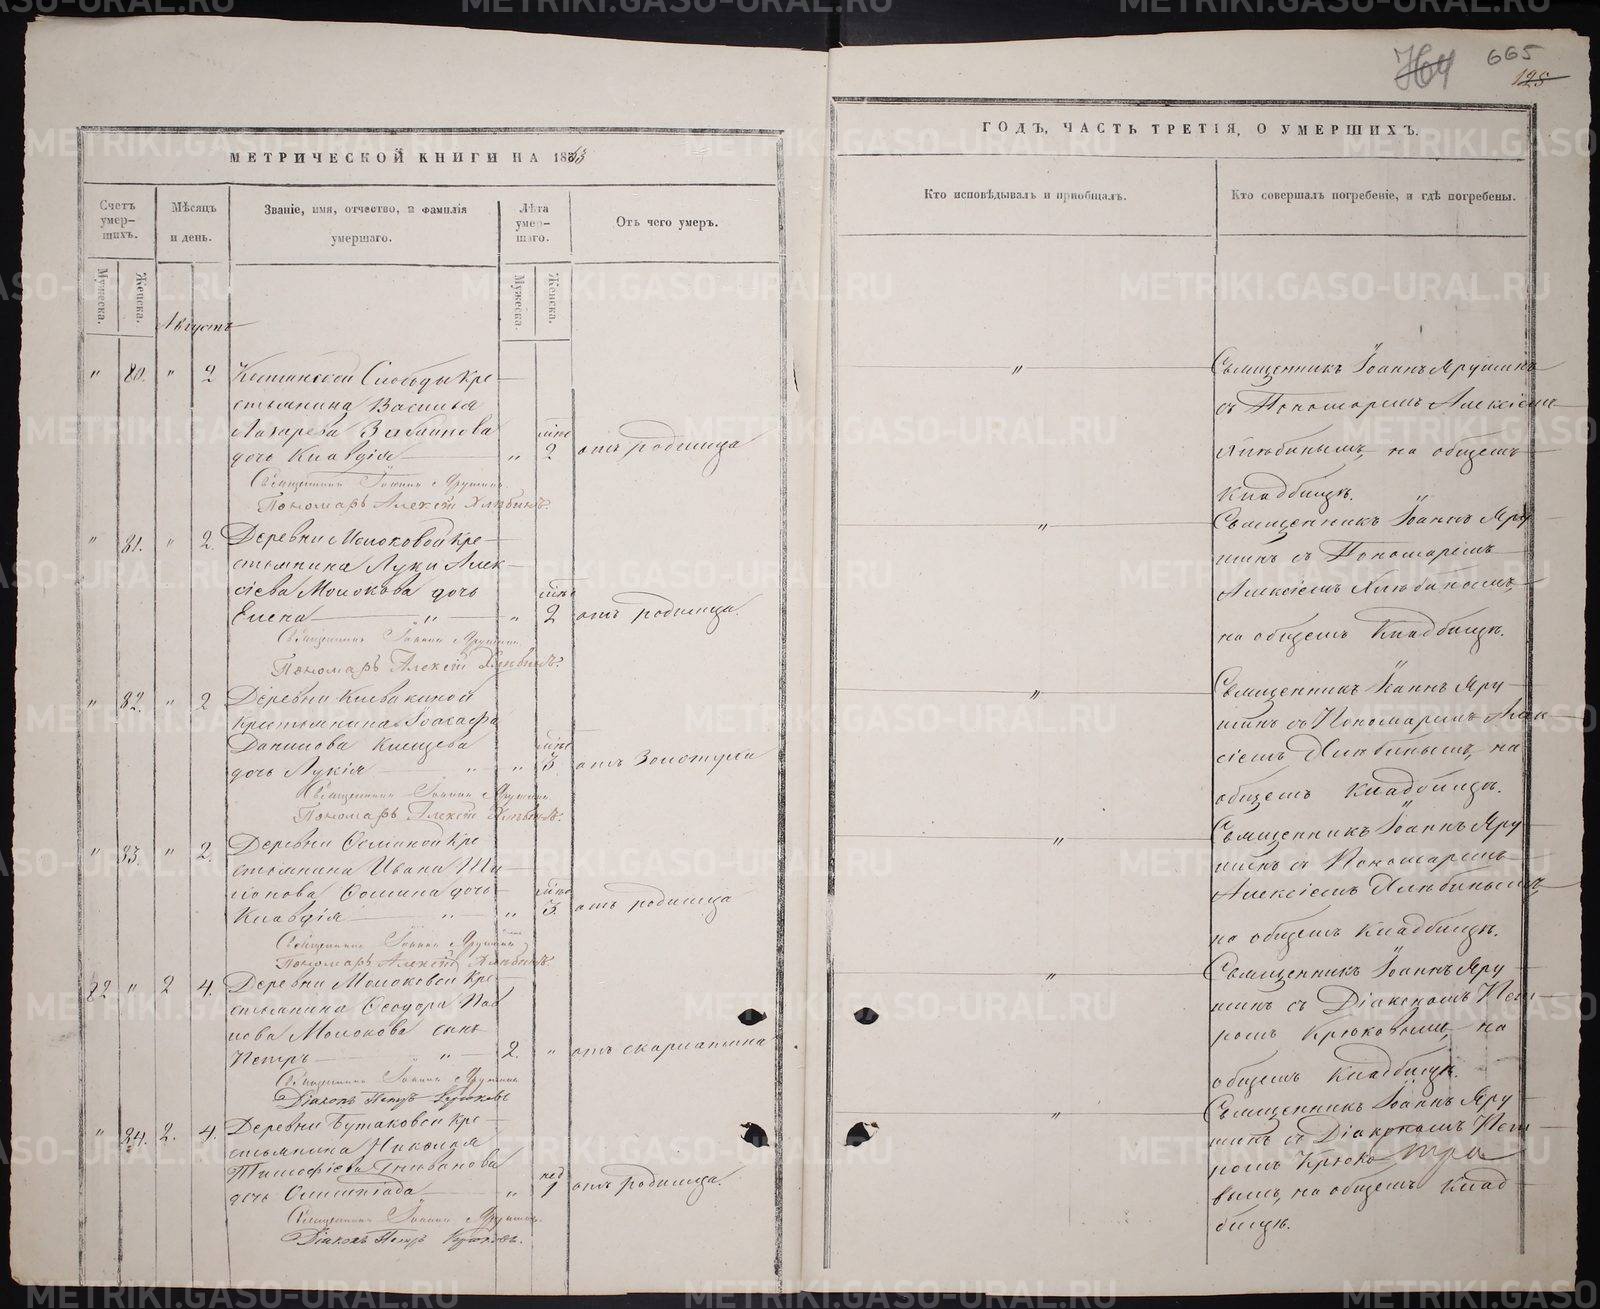 665
128
МЕТРИЧЕСКОЙ КНИГИ НА 1863
ГОДЪ, ЧАСТЬ ТРЕТІЯ, О УМЕРШИХЪ.
Счетъ умершихъ.
Мужеска.
Женска.
Мѣсяцъ и день.
Званіе, имя, отчество, и фамилія умершаго.
Лѣта умершаго.
Мужеска.
Женска.
Отъ чего умеръ.
Кто исповѣдывалъ и пріобщалъ.
Кто совершалъ погребеніе, и гдѣ погребены.
Августъ
" 80. " 2
Слободы Кре-
стьянина Василья
Лазарева
дочь Клавдія " 2 отъ родимца
Священникъ Іоаннъ Ярушинъ
Пономарь Алексѣй Хлѣбинъ.
"
Священникъ Іоаннъ Ярушинъ
съ Пономаремъ Алексіемъ
Хлѣбинымъ, на общемъ
Кладбищѣ.
" 81. " 2.
Деревни Молоковой Кре-
стьянина Луки Алек-
сіева Молокова дочь
Елена " " 2 отъ родимца.
Священникъ Іоаннъ Ярушинъ
Пономарь Алексѣй Хлѣбинъ.
"
Священникъ Іоаннъ Яру-
шинъ съ Пономаремъ
Алексіемъ Хлѣбинымъ,
на общемъ Кладбищѣ.
" 82. " 2
Деревни Клевакиной
Крестьянина Іоасафа
Данилова Клещева
дочь Лукія " " 3. отъ Золотухи
Священникъ Іоаннъ Ярушинъ
Пономарь Алексѣй Хлѣбинъ.
"
Священникъ Іоаннъ Яру-
шинъ съ Пономаремъ Алек-
сіемъ Хлѣбинымъ, на
общемъ Кладбищѣ.
" 83. " 2.
Деревни Соминой Кре-
стьянина Ивана
Сомина дочь
Клавдія " " 3. отъ родимца
Священникъ Іоаннъ Ярушинъ
Пономарь Алексѣй Хлѣбинъ.
"
Священникъ Іоаннъ Яру-
шинъ съ Пономаремъ
Алексіемъ Хлѣбинымъ,
на общемъ Кладбищѣ.
82 " 2 4.
Деревни Молоковой Кре-
стьянина Ѳеодора Пав-
лова Молокова сынъ
Петръ " 2. " отъ скарлатина
Священникъ Іоаннъ Ярушинъ
Діаконъ Петръ Крюковъ
"
Священникъ Іоаннъ Яру-
шинъ съ Діакономъ Пет-
ромъ Крюковымъ, на
общемъ Кладбищѣ.
" 84. 2. 4.
Деревни Бутаковой Кре-
стьянина Николая
Тимофѣева
дочь Олимпіада " нед 1 отъ родимца.
Священникъ Іоаннъ Ярушинъ.
Діаконъ Петръ Крюковъ.
"
Священникъ Іоаннъ Яру-
шинъ съ Діакономъ Пет-
ромъ Крюко-
вымъ, на общемъ Клад-
бищѣ.
METRIKI.GASO-URAL.RU